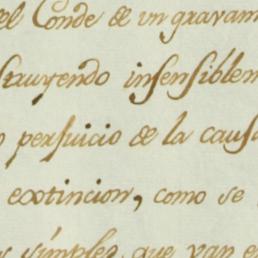 el Conde de un gravam
struyendo insensiblem
o perjuicio de la caus
extincion, como se
simples que van e